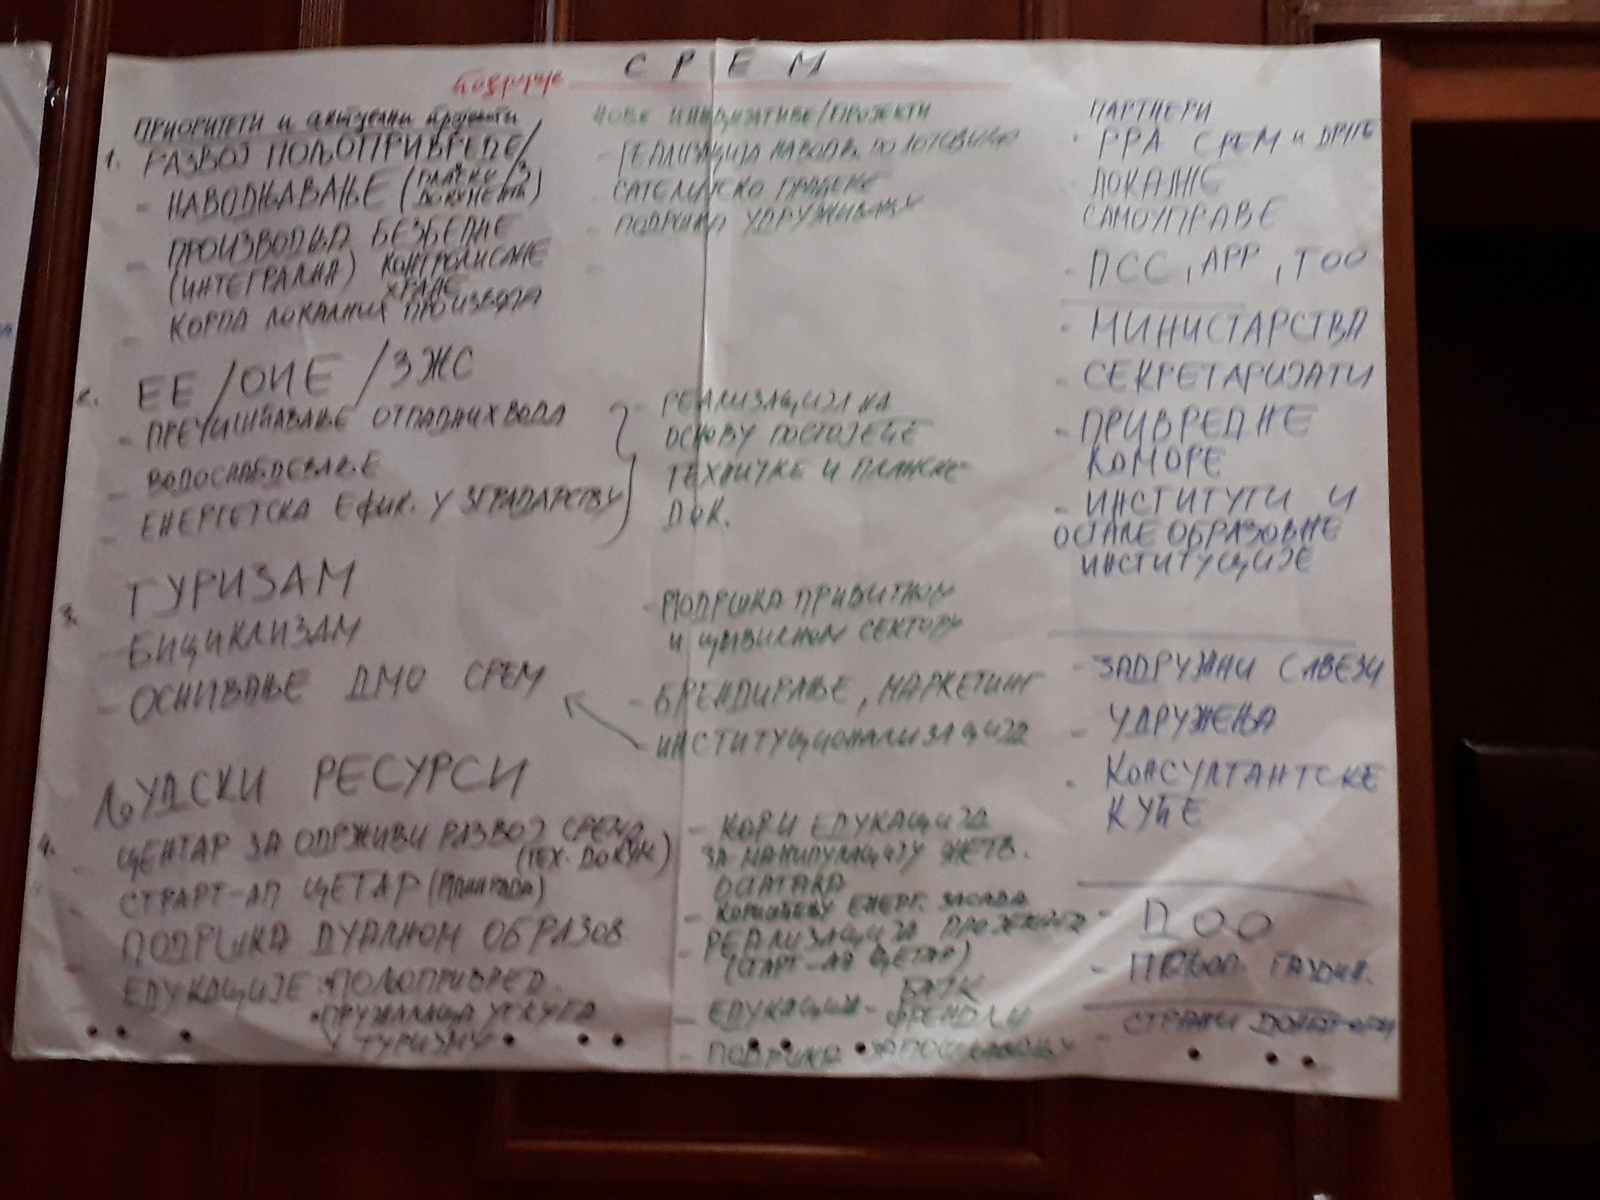 СРЕМ
подручје
ПРИОРИТЕТИ и актуелни пројекти
1. РАЗВОЈ ПОЉОПРИВРЕДЕ/
- НАВОДЊАВАЊЕ (
ПРОИЗВОДЊА БЕЗБЕДНЕ
- (ИНТЕГРАЛНА) КОНТРОЛИСАНЕ
ХРАНЕ
- КОРПА ЛОКАЛНИХ ПРОИЗВОДА
2. ЕЕ/ОИЕ/ЗЖС
- ПРЕЧИШЋАВАЊЕ ОТПАДНИХ ВОДА
- ВОДОСНАБДЕВАЊЕ
- ЕНЕРГЕТСКА ЕФИК. У ЗГРАДАРСТВУ
3. ТУРИЗАМ
- БИЦИКЛИЗАМ
- ОСНИВАЊЕ ДМО СРЕМ
4. ЉУДСКИ РЕСУРСИ
- ЦЕНТАР ЗА ОДРЖИВИ РАЗВОЈ СРЕМА
(ТЕХ. ДОКУМ)
- СТРАРТ-АП ЦЕТАР
- ПОДРШКА ДУАЛНОМ ОБРАЗОВ
- ЕДУКАЦИЈЕ • ПОЉОПРИВРЕД.
• ПРУЖАЛАЦА УСЛУГА
У ТУРИЗМУ
НОВЕ ИНИЦИЈАТИВЕ/ПРОЈЕКТИ
- РЕАЛИЗАЦИЈА НАВОДЊ. ПО
- САТЕЛИТСКО ПРАЋЕЊЕ
- ПОДРШКА УДРУЖИВАЊУ
-
- РЕАЛИЗАЦИЈА НА
ОСНОВУ ПОСТОЈЕЋЕ
ТЕХНИЧКЕ И ПЛАНСКЕ
ДОК.
- ПОДРШКА ПРИВАТНОМ
И ЦИВИЛНОМ СЕКТОРУ
- БРЕНДИРАЊЕ, МАРКЕТИНГ
- ИНСТИТУЦИОНАЛИЗАЦИЈА
- ЕДУКАЦИЈА
ЗА МАНИПУЛАЦИЈУ ЖЕТВ.
ОСТАТАКА
- ЕНЕРГ. ЗАСАДА
- РЕАЛИЗАЦИЈА ПРОЈЕКАТА
(СТАРТ-АП ЦЕТАР)
- ЕДУКАЦИЈА - БАЈК
ФРЕНДЛИ
- ПОДРШКА ЗАПОШЉАВАЊУ
ПАРТНЕРИ
- РРА СРЕМ и ДРУГЕ
- ЛОКАЛНЕ
САМОУПРАВЕ
- ПСС, АРР, ТОО
- МИНИСТАРСТВА
- СЕКРЕТАРИЈАТИ
- ПРИВРЕДНЕ
КОМОРЕ
- ИНСТИТУТИ И
ОСТАЛЕ ОБРАЗОВНЕ
ИНСТИТУЦИЈЕ
- ЗАДРУЖНИ САВЕЗИ
- УДРУЖЕЊА
- КОНСУЛТАНТСКЕ
КУЋЕ
- ДОО
- ПОЉОП. ГАЗДИН.
- СТРАНИ ДОНАТОРИ